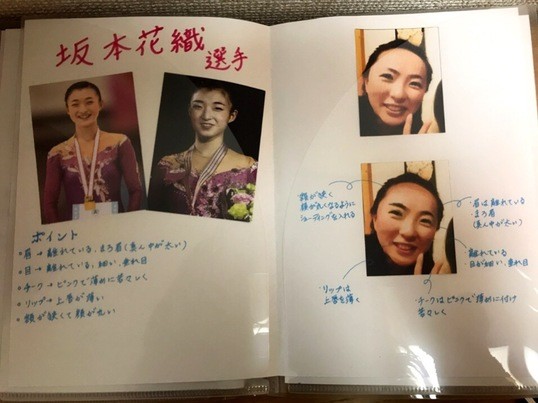 坂本花織
選手
ポイント
・眉→離れている、まろ眉(真ん中が太い)
・目→離れている、細い、垂れ目
・チーク→ピンクで薄めに若々しく
・リップ→上唇が薄い
・額が狭くて顔が丸い
額が狭く
顔が丸くなるように
シェーディングを入れる
・眉は離れている
・まろ眉
(真ん中が太い)
・離れている
・目が細い、垂れ目
・リップは
上唇を薄く
・チークはピンクで薄めに付け
若々しく